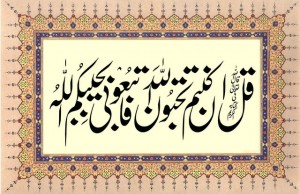 قل ان کنتم تحبون الله فاتبعونی یحببکم الله